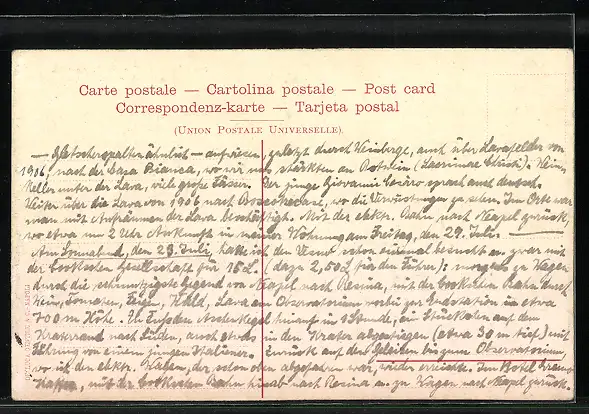 Carte postale — Cartolina postale — Post card
Correspondenz-karte — Tarjeta postal
(UNION POSTALE UNIVERSELLE).
— Gletscherspalten ähnlich — aufwiesen, zuletzt durch Weinberge, auch über Lavafelder von
1906, nach der Casa Bianca, wo wir uns stärkten an Rotwein (Lacrimae Christi). Wein-
keller unter der Lava, viele große Fässer. Der junge Giovanni sprach auch deutsch.
Weiter über die Lava von 1906 nach Boscotrecase, wo die Verwüstungen zu sehen. Im Orte war
man mit Aufräumen der Lava beschäftigt. Mit der elektr. Bahn nach Neapel zurück,
wo etwa um 2 Uhr Ankunft in meiner Wohnung am Freitag, den 29. Juli. —
Am Sonnabend, den 23. Juli, hatte ich den Vesuv schon einmal besucht u. zwar mit
der Cookschen Gesellschaft für (dazu 2,50 L für den Führer): morgens zu Wagen
durch die schmutzigste Gegend von Neapel nach Resina, mit der Cookschen Bahn durch
Wein, Tomaten, Feigen, Wald, Lava am Observatorium vorbei zur Endstation in etwa
700 m Höhe. Zu Fuß den Aschenkegel hinauf in 1 Stunde, ein Stückchen auf dem
Kraterrand nach Süden, auch etwas in den Krater abgestiegen (etwa 30 m tief) mit
Führung von einem jungen Italiener. Zurück auf den Geleisen bis zum Observatorium,
wo ich den elektr. Wagen, der schon oben abgefahren war, wieder erreichte. Im Hotel
Kaffee, mit der Cookschen Bahn hinab nach Resina u. zu Wagen nach Neapel zurück.